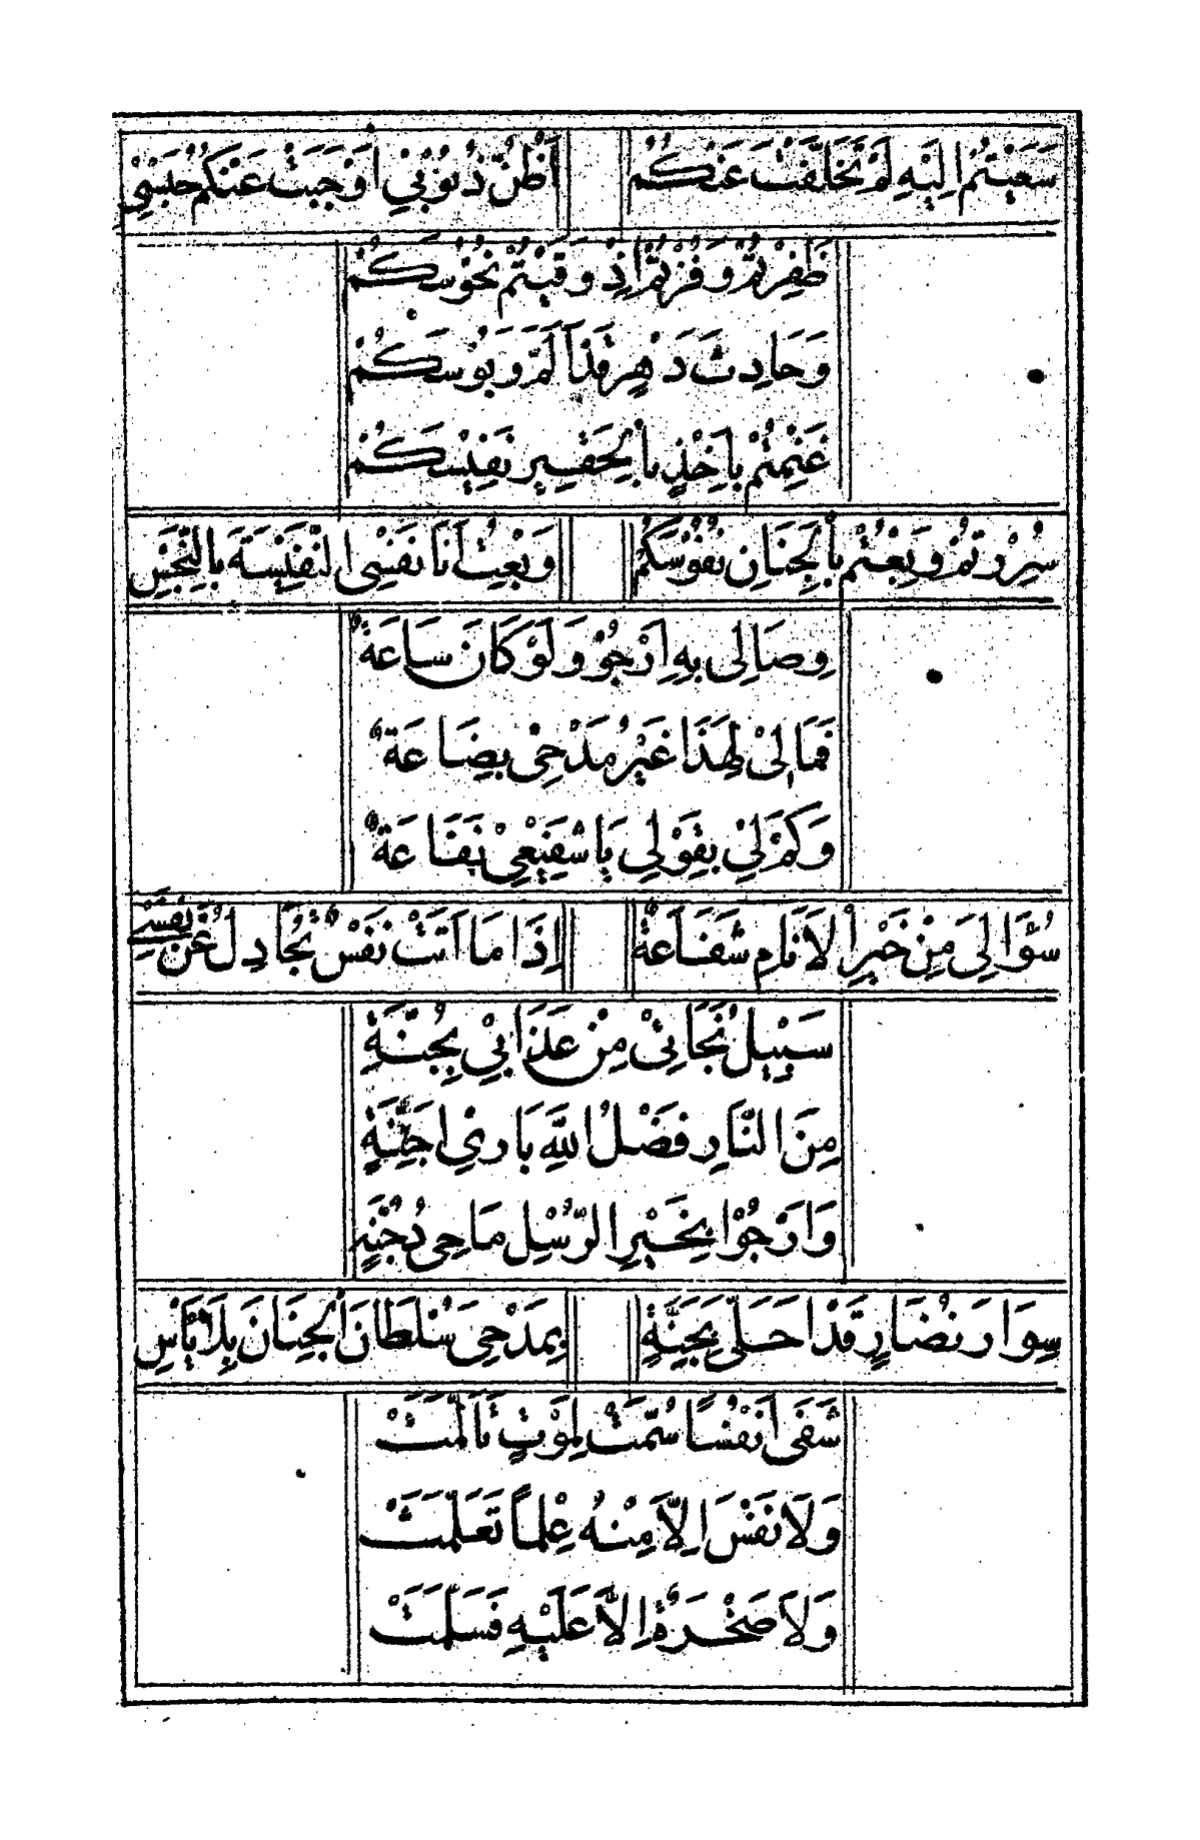 سَعَيْتُمْ اِلَيْهِ لَمْ تَخَلَّفْتُ عَنْكُمْ اَظُنُّ ذُنُوْبِيْ اَوْجَبَتْ عَنْكُمُ حَبْسِيْ
ظَفِرْتُمْ وَفُزْتُمْ اِذْ وُقِيْتُمْ نُحُوْسَكُمْ
وَحَادِثَ دَهْرٍ قَدْ اَلَمَّ وَبُوْسَكُمْ
غَنِمْتُمْ بِاَخْذٍ بِالْحَقِيْرِ نَفِيْسَكُمْ
سُرِرْتُمْ وَبِعْتُمْ بِالْجِنَانِ نُفُوْسَكُمْ وَبِعْتُ اَنَا نَفْسِى النَّفِيْسَةَ بِالْبَخْسِ
وِصَالِى بِهِ اَرْجُوْ وَلَوْ كَانَ سَاعَةً
فَمَالِىْ لِهَذَا غَيْرُ مَدْحِىْ بِضَاعَةٌ
وَكَمْ لِيْ بِقَوْلِي يَا شَفِيْعِيْ نَفَاعَةٌ
سُؤَالِىَ مِنْ خَيْرِ الْاَنَامِ شَفَاعَةٌ اِذَا مَا اَتَتْ نَفْسٌ تُجَادِلُ عَنْ نَفْسِيْ
سَبِيْلُ نَجَاتِىْ مِنْ عَذَابِيْ بِجُنَّةٍ
مِنَ النَّارِ فَضْلُ اللهِ بَارِئِ اَجِنَّةٍ
وَاَرْجُوْا بِخَيْرِ الرُّسْلِ مَاحِى دُجُنَّةٍ
سِوَارَ نُضَارٍ قَدْ اَحَلَّى بِجَنَّةٍ بِمَدْحِى سُلْطَانَ الْجِنَانِ بِلَا يَأْسِ
شَفَى اَنْفُسًا سُمَّتْ لِمَوْتٍ تَأَلَّمَتْ
وَلَا نَفْسَ اِلَّا مِنْهُ عِلْمًا تَعَلَّمَتْ
وَلَا صَخْرَةٌ اِلَّا عَلَيْهِ فَسَلَّمَتْ